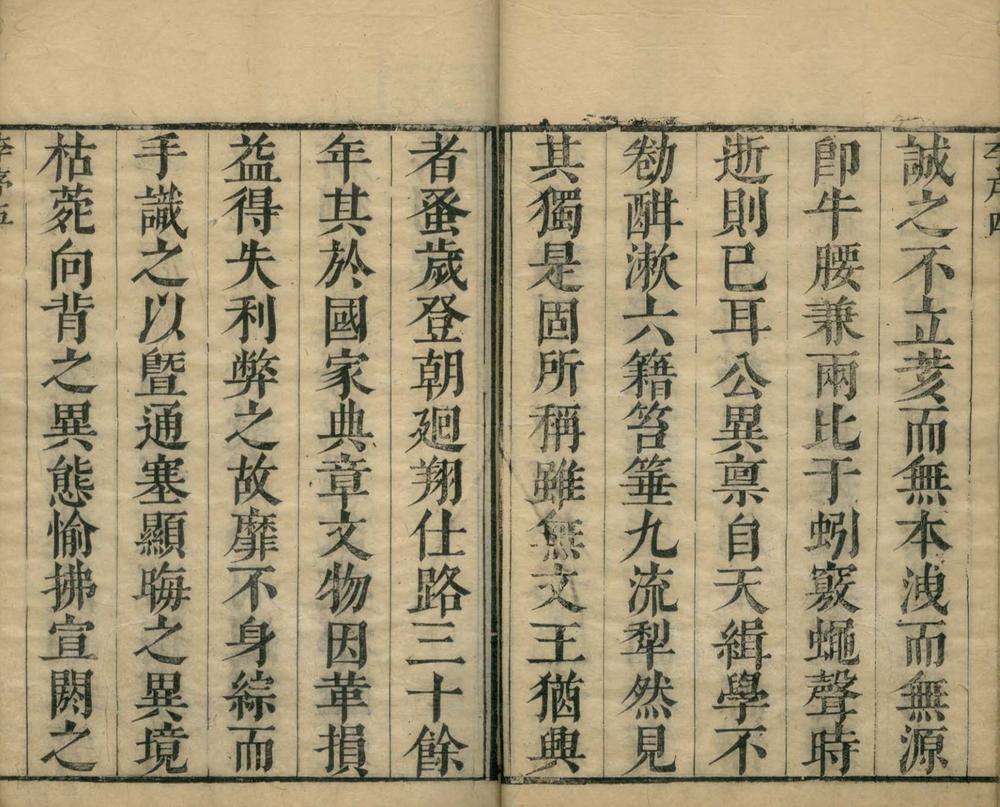 李序四
誠之不立荄而無本洩而無源
卽牛腰兼兩比于蚓竅蠅聲時
逝則已耳公異禀自天緝學不
勌酣漱六籍笞箠九流犁然見
其獨是固所稱雖無文王猶興
者蚤歲登朝廻翔仕路三十餘
年其於國家典章文物因革損
益得失利弊之故靡不身綜而
手識之以曁通塞顯晦之異境
枯菀向背之異態愉拂宣閼之
李序五